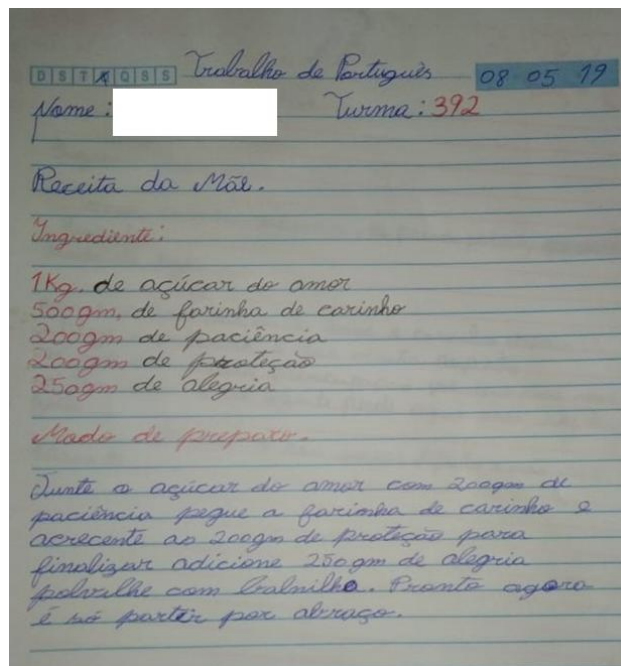 D S T Q Q S S Trabalho de Português 08 05 19
Nome: Turma: 392
Receita da Mãe.
Ingrediente:
1Kg. de açúcar do amor
500gm. de farinha de carinho
200gm de paciência
200gm de proteção
250gm de alegria
Modo de preparo.
Junte o açúcar do amor com 200gm de
paciência pegue a farinha de carinho e
acrecente as 200gm de proteção para
finalizar adicione 250gm de alegria
polvilhe com balnilha. Pronto agora
é só partir por abraço.